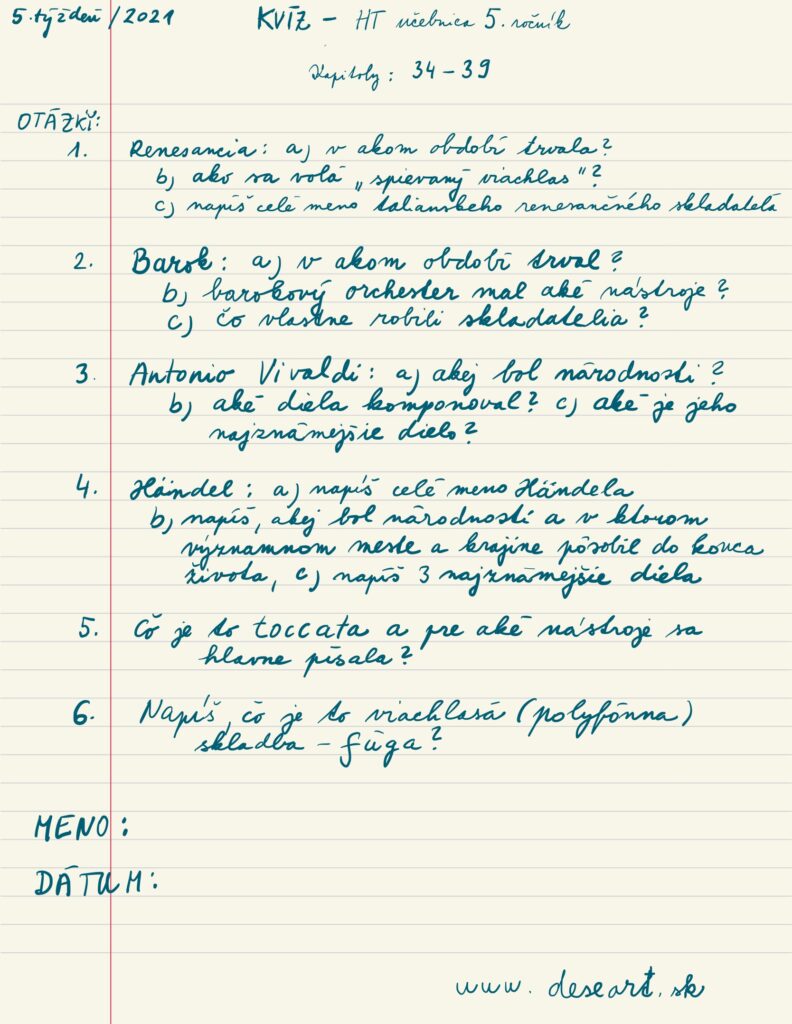 5. týždeň / 2021 KVÍZ - HT učebnica 5. ročník
Kapitoly: 34 - 39
OTÁZKY:
1. Renesancia: a) v akom období trvala?
b) ako sa volá „spievaný viachlas"?
c) napíš celé meno talianskeho renesančného skladateľa
2. Barok: a) v akom období trval?
b) barokový orchester mal aké nástroje?
c) čo vlastne robili skladatelia?
3. Antonio Vivaldi: a) akej bol národnosti?
b) aké diela komponoval? c) aké je jeho
najznámejšie dielo?
4. Händel: a) napíš celé meno Händela
b) napíš, akej bol národností a v ktorom
významnom meste a krajine pôsobil do konca
života, c) napíš 3 najznámejšie diela
5. Čo je to toccata a pre aké nástroje sa
hlavne písala?
6. Napíš, čo je to viachlasá (polyfónna)
skladba - fúga?
MENO:
DÁTUM:
www.deseart.sk